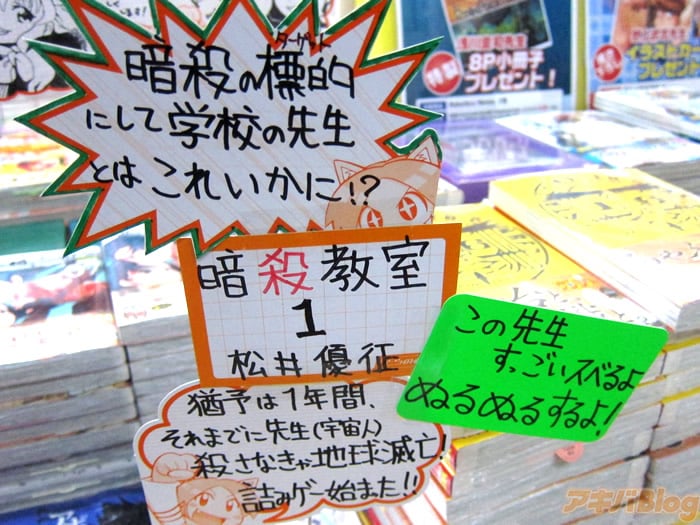 ターゲット
暗殺の標的
にして学校の先生
とはこれいかに!?
暗殺教室
1
松井優征
この先生
すっごいスベるよ
ぬるぬるするよ!
猶予は1年間、
それまでに先生(宇宙人)
殺さなきゃ地球滅亡!
詰みゲー始まった!!
特製
8P小冊子
プレゼント!
イラストカード
プレゼント!
アキバBlog